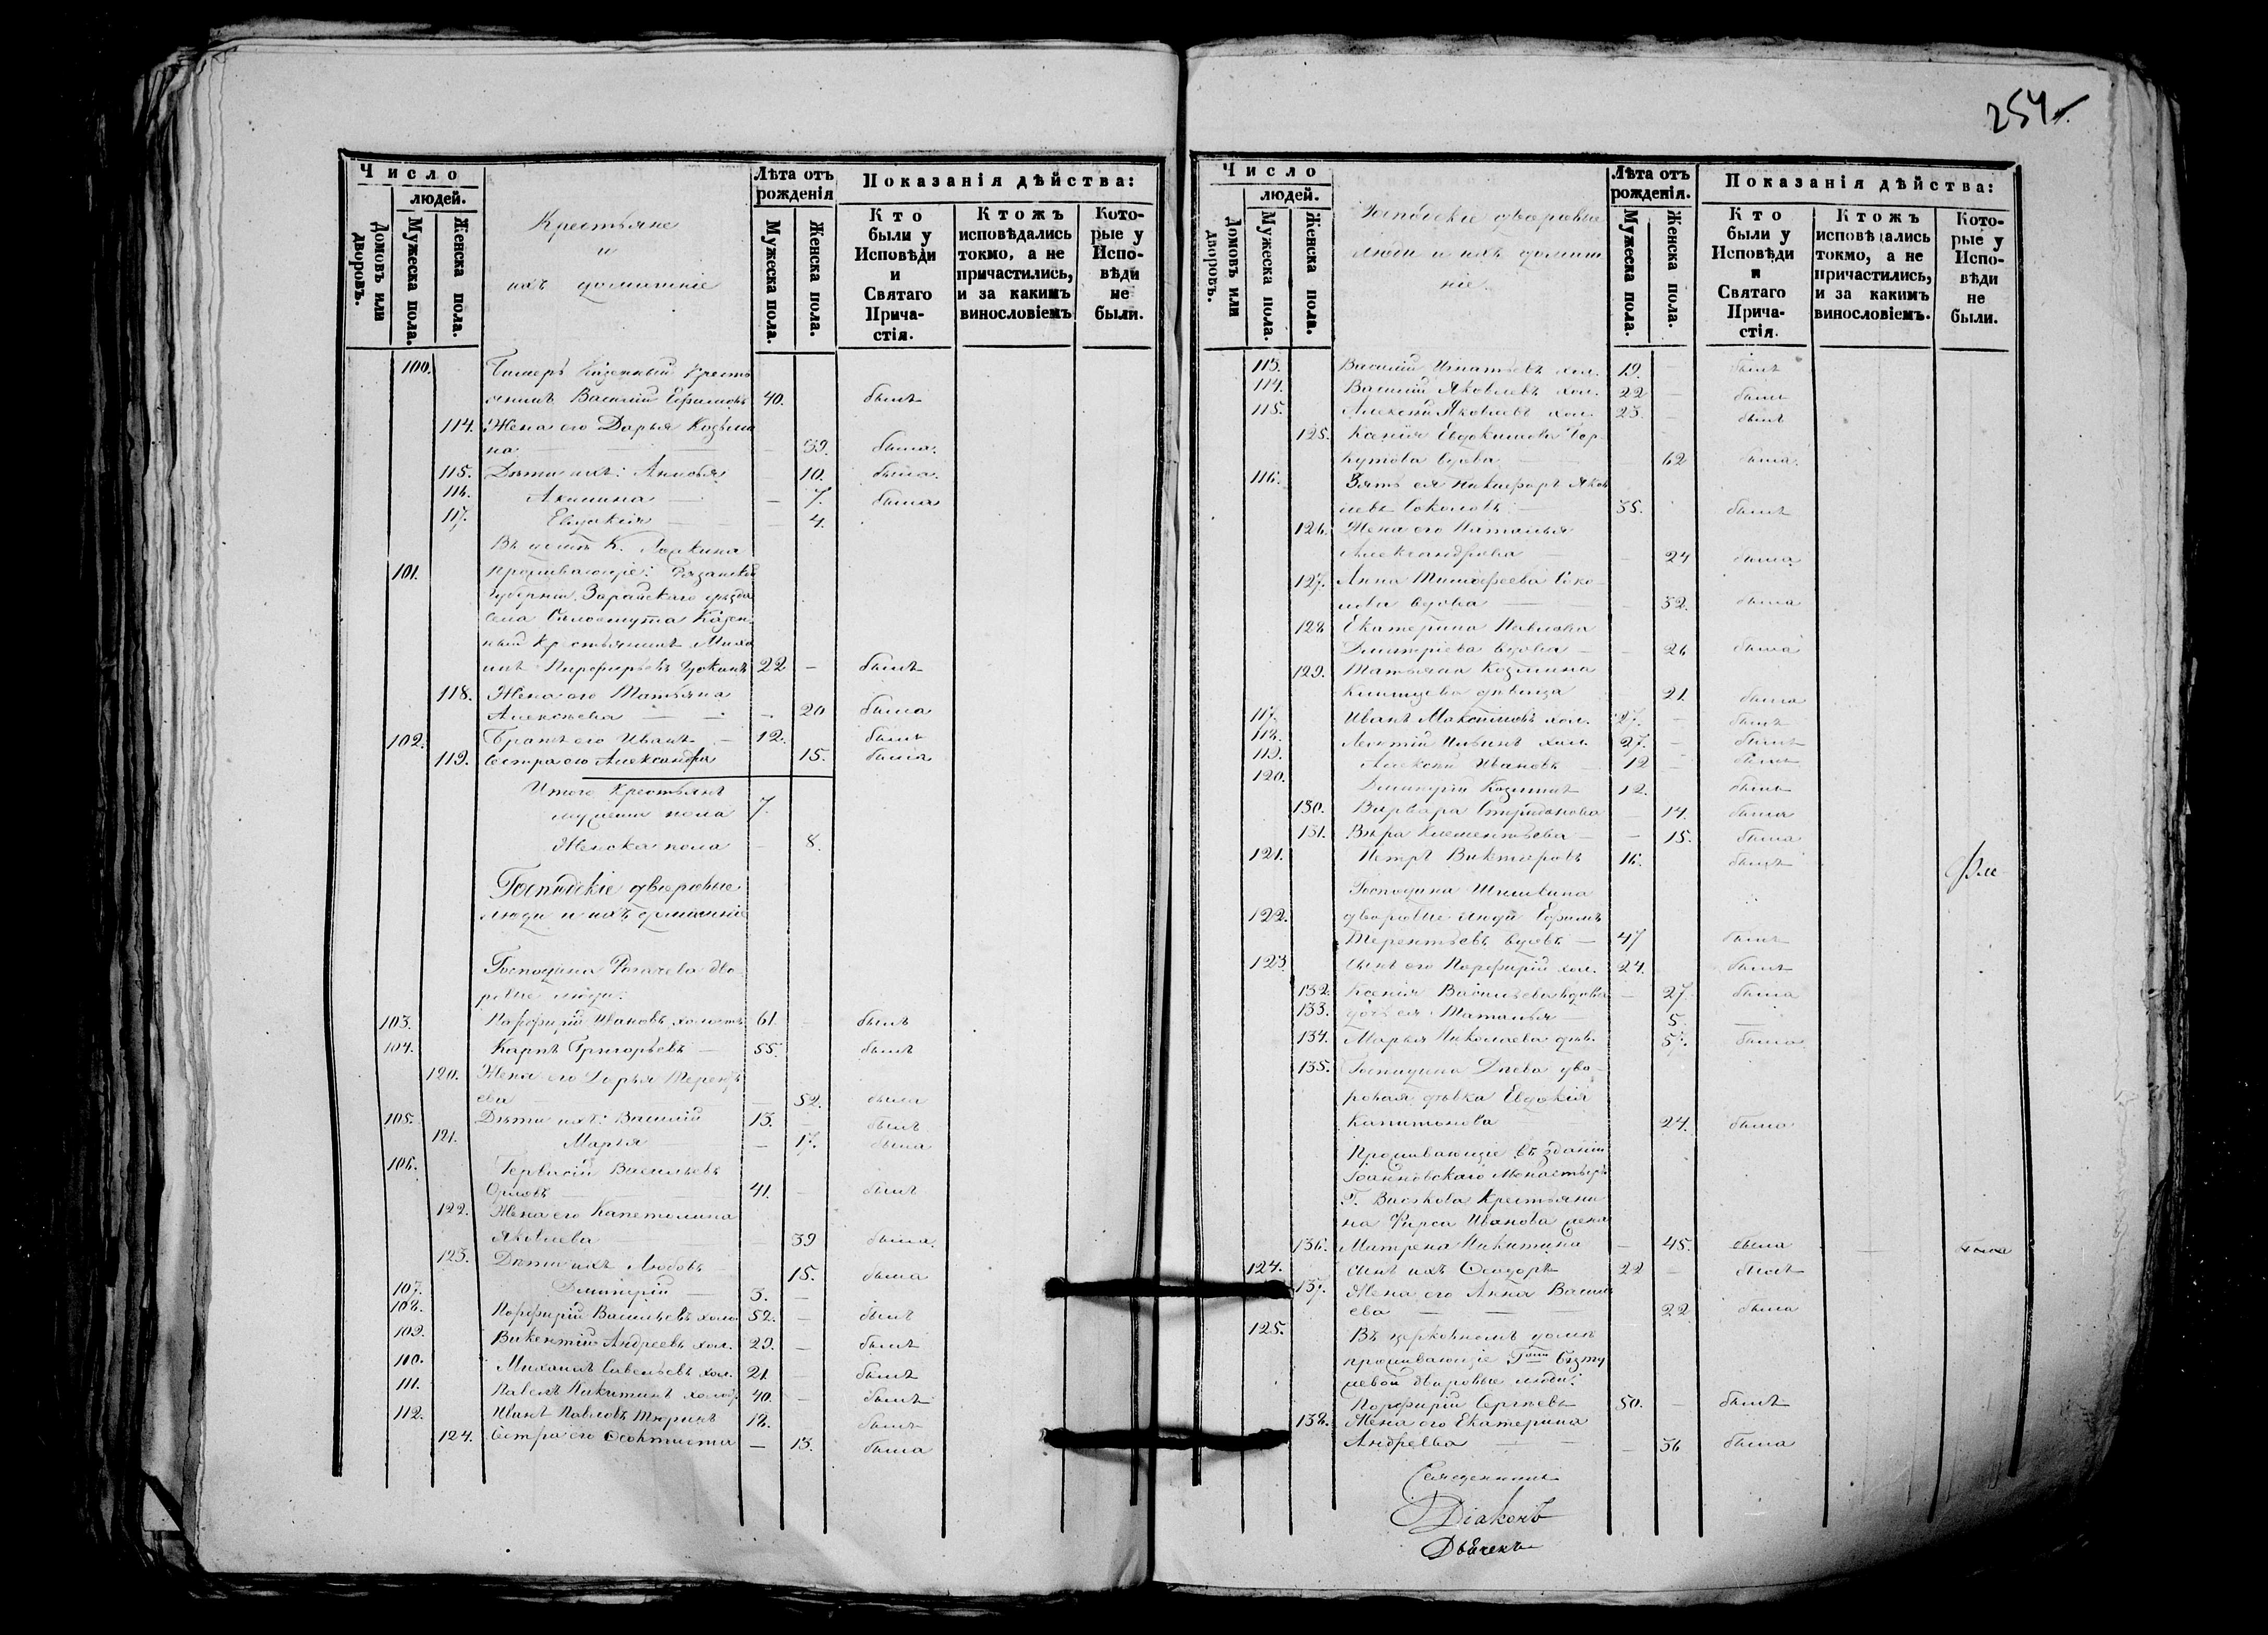 254.
Число
людей.
Домовъ или дворовъ.
Мужеска пола.
Женска пола.
Крестьяне
и
ихъ домашніе
Лѣта отъ рожденія
Мужеска пола.
Женска пола.
Показанія дѣйства:
Кто были у Исповѣди и Святаго Прича-стія.
Ктожъ исповѣдались токмо, а не причастились, и за какимъ винословіемъ
Кото-рые у Испо-вѣди не были.
100. Казенный Кресть
янинъ Василій Ефимовъ 40. былъ
114. Жена его Дарья Козьми
на — 39. была.
115. Дѣти ихъ: 10. была.
116. Акилина — – 7. была
117. Евдокія — 4.
Въ домѣ К. Лоркина
101. проживающіе: Рязанской
Губерніи Зарайскаго уѣзда
села Казен
ный Крестьянинъ Миха
илъ Порфирьевъ 22 – былъ
118. Жена его Татьяна
Алексѣева — – 20 была
102. Братъ его Иванъ – 12. былъ
119. Сестра его Александра 15. была
Итого Крестьянъ
мужеска пола 7.
Женска пола – 8.
Господскіе дворовые
люди и ихъ домашніе
Господина Рогачева дво-
ровые люди:
103. Порфирій Ивановъ холостъ 61. – былъ
104. Карпъ Григорьевъ — 55. былъ
120. Жена его Дарья Терентъ
ева — 52. была
105. Дѣти ихъ: Василій 13. – былъ
121. Марья — – 17. была
106. Гервасій Васильевъ
Орловъ — 41. – былъ
122. Жена его Капетолина
Яковлева — 39 была.
123. Дѣти ихъ Любовь – 15. была
107. Димитрій — 3. –
108. Порфирій Васильевъ холо 52. – былъ
109. Викентій Андреевъ хол. 29. – былъ
110. Михаилъ Савельевъ хол. 21. – былъ
111. Павелъ Никитинъ холос. 40. – былъ
112. Иванъ Павловъ 18. былъ
124. Сестра его Ѳеоктиста — 13. была
Число
людей.
Домовъ или дворовъ.
Мужеска пола.
Женска пола.
Господскіе дворовые
люди и ихъ домаш
ніе.
Лѣта отъ рожденія.
Мужеска пола.
Женска пола.
Показанія дѣйства:
Кто были у Исповѣди и Святаго Прича-стія.
Ктожъ исповѣдались токмо, а не причастились, и за какимъ винословіемъ.
Кото-рые у Испо-вѣди не были.
113. Василій Игнатьевъ хол. 19. – былъ
114. Василій Яковлевъ хол. 22 – былъ
115. Алексѣй Яковлевъ хол. 23. – былъ
125. Ксенія Евдокимова
вдова — 62 была.
116. Зять ея Никифоръ Яков
левъ Соколовъ — 35. былъ
126. Жена его Наталья
Александрова — – 24 была
127. Анна Тимофеева Соко-
лова вдова — – 52. была
128 Екатерина Павлова
Димитріева вдова – – 26 была
129. Татьяна Козмина
дѣвица 21. была
117. Иванъ Максимовъ хол. 27. – былъ
118. Леонтій Ильинъ хол. 27. – былъ
119. Алексѣй Ивановъ 12 – былъ
120. Димитрій Козминъ 12. былъ
130. Варвара Спиридонова – 14. была
131. Вѣра Климентьева – – 15. была
121. Петръ Викторовъ 16. былъ
Господина
122. дворовые люди Ефимъ
Терентьевъ вдовъ — 47 былъ
123 сынъ его Порфирій хол. 24. былъ
132. Ксенія Васильева вдова – 27. была
133. дочь ея Наталья – 5. —
134. Марья Николаева дѣв. 57. была
135. Господина дво-
ровая дѣвка Евдокія
Капитонова — 24. была
Проживающіе въ зданіи
Іоанновскаго Монастыря
Г. Крестьяни
на Фирса Иванова жена
136. Матрена Никитина – 45. была –
124. сынъ ихъ Ѳеодоръ 22 – былъ
137. Жена его Анна Василь
ева — — 22 была
125. Въ церковномъ домѣ
проживающіе Гжи
дворовые люди:
Порфирій Сергѣевъ 50. – былъ
138. Жена его Екатерина
Андреева — – – 36 была
Священникъ
Діаконъ
Дьячекъ